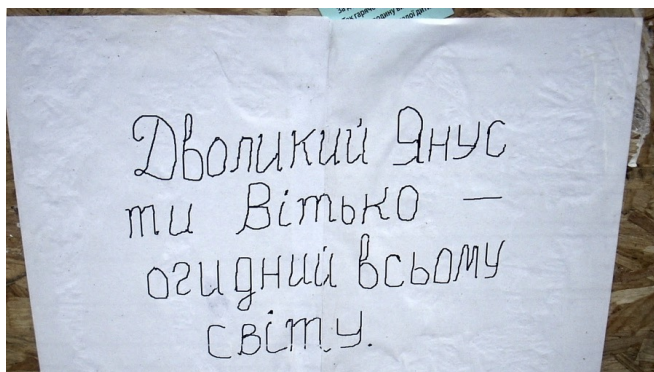 Дволикий Янус
ти Вітько —
огидний всьому
світу.